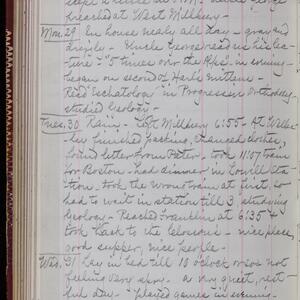 preached at West Millbury -
Mon. 29 In house nearly all day - gray and
drizzly - Uncle George read us his lec-
ture - "5 times over the Alps" in evening -
began on second of Harl's mittens -
Read Eschatology in Progressive Orthodoxy -
studied Geology -
Tues. 30 Rain - Left Millbury 6:55 -
finished packing, changed clothes,
found letter from Peter - took 11:07 train
for Boston - had dinner in Lowell Sta-
tion. took the wrong train at first, so
had to wait in station till 3 studying
Geology - Reached Franklin at 6:35 &
took hack to the - nice place,
good supper, nice people -
Wed. 31 Lay in bed till 10 o'clock not
feeling very spry - a very quiet, rest-
ful day - played games in evening -